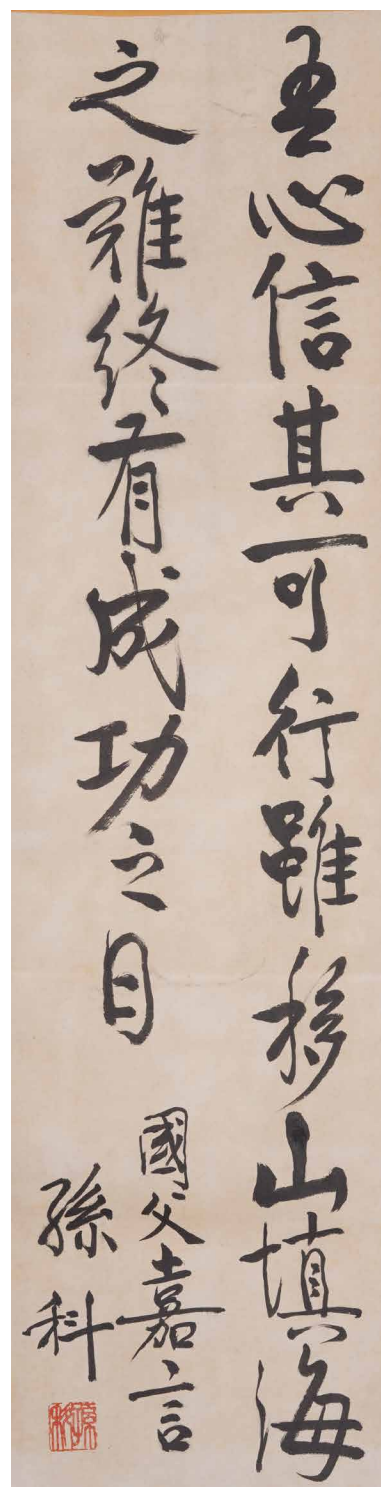 吾心信其可行雖移山填海
之難終有成功之日
國父嘉言
孫科
孫科